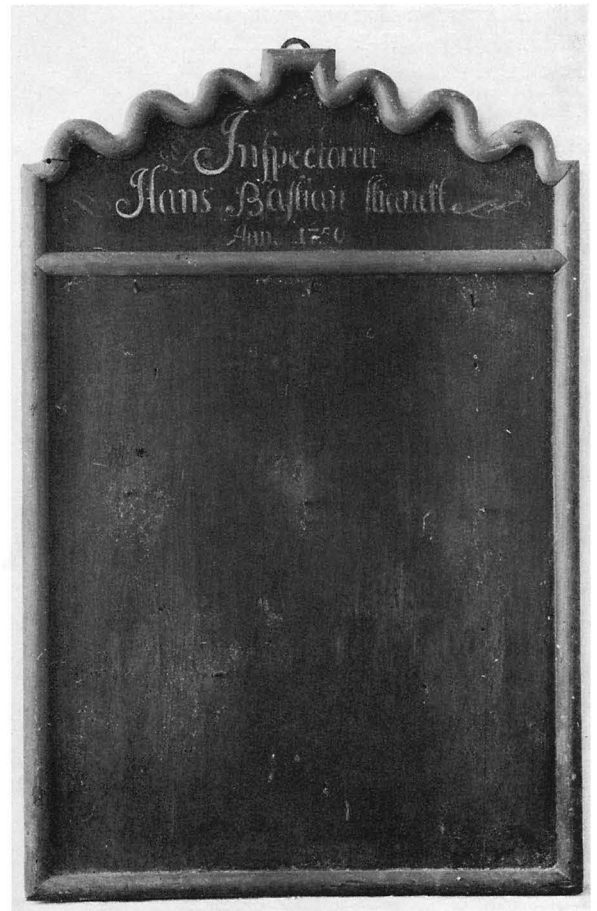 Inspectorn
Hans Bastian
Ann. 1750